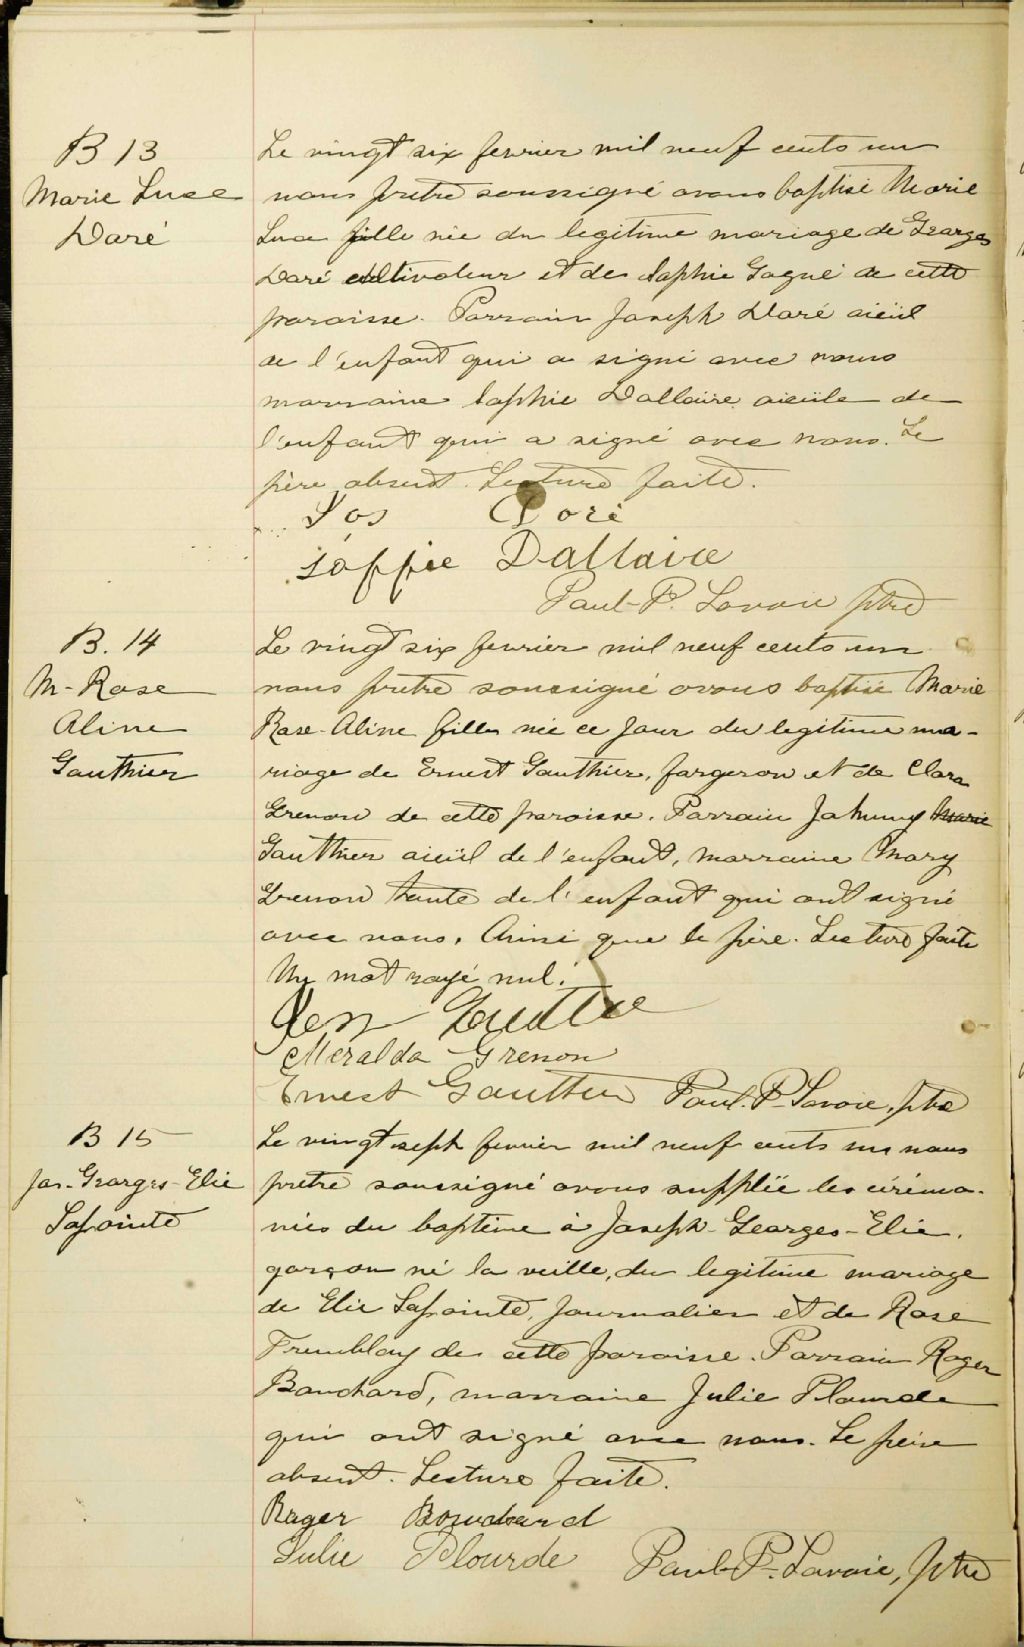 B 13
Marie Luce
Doré
Le vingt six fevrier mil neuf cents un
nous prêtre soussigné avons baptisé Marie
Luce fille née du legitime mariage de Georges
Doré cultivateur et de Sophie Gagné de cette
paroisse. Parrain Joseph Doré aieül
de l'enfant qui a signé avec nous
marraine Sophie Dallaire aieüle de
l'enfant qui a signé avec nous. Le
père absent. Lecture faite.
Jos Doré
soffie Dallaire
Paul-P. Lavoie ptre
B. 14
M-Rose
Aline
Gauthier
Le vingt six fevrier mil neuf cents un
nous prêtre soussigné avons baptisé Marie
Rose-Aline fille née ce jour du legitime ma-
riage de Ernest Gauthier, forgeron et de Clara
Grenon de cette paroisse. Parrain Johnny Marie
Gauthier aieül de l'enfant, marraine Mary
Grenon tante de l'enfant qui ont signé
avec nous. Ainsi que le père. Lecture faite
Un mot rayé nul.
Meralda Grenon
Ernest Gauthier Paul-P-Lavoie, ptre
B 15
Jos-Georges-Elie
Lapointe
Le vingt-sept fevrier mil neuf cents un nous
prêtre soussigné avons supplié les cérémo-
nies du baptême à Joseph-Georges-Elie.
garçon né la veille, du legitime mariage
de Elie Lapointe, journalier et de Rose
Tremblay de cette paroisse. Parrain Roger
Bouchard, marraine Julie Plourde
qui ont signé avec nous. Le père
absent. Lecture faite.
Roger Bouchard
Julie Plourde Paul-P-Lavoie, ptre